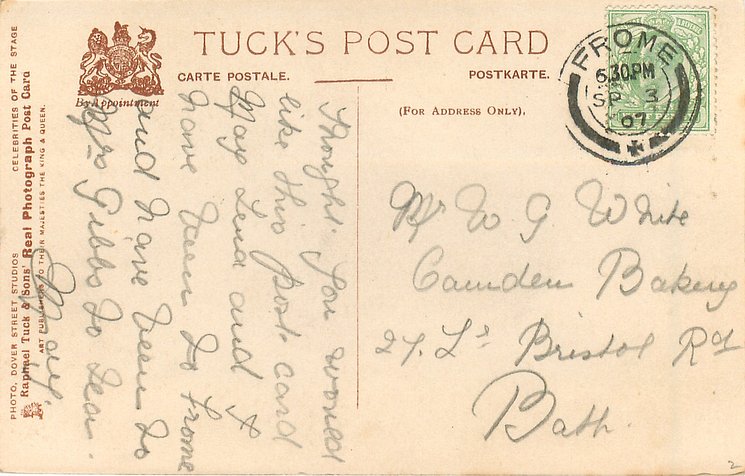 TUCK'S POST CARD
CARTE POSTALE.
POSTKARTE.
By Appointment
(FOR ADDRESS ONLY).
FROME
6.30.PM
SP 3
07
PHOTO, DOVER STREET STUDIOS
CELEBRITIES OF THE STAGE
Raphael Tuck & Sons' Real Photograph Post Card
ART PUBLISHERS TO THEIR MAJESTIES THE KING & QUEEN.
Thought you would
like this Post card
May Lena and I
have been to Frome
and have been to
Mrs Gibbs to tea.
May.
Mr W G White
Camden Bakery
27. Lr Bristol Rd
Bath.
2